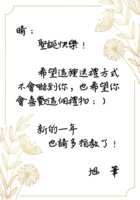 晴：
聖誕快樂！
希望這種送禮方式
不會嚇到你，也希望你
會喜歡這個禮物：)
新的一年
也請多指教了！
旭筆